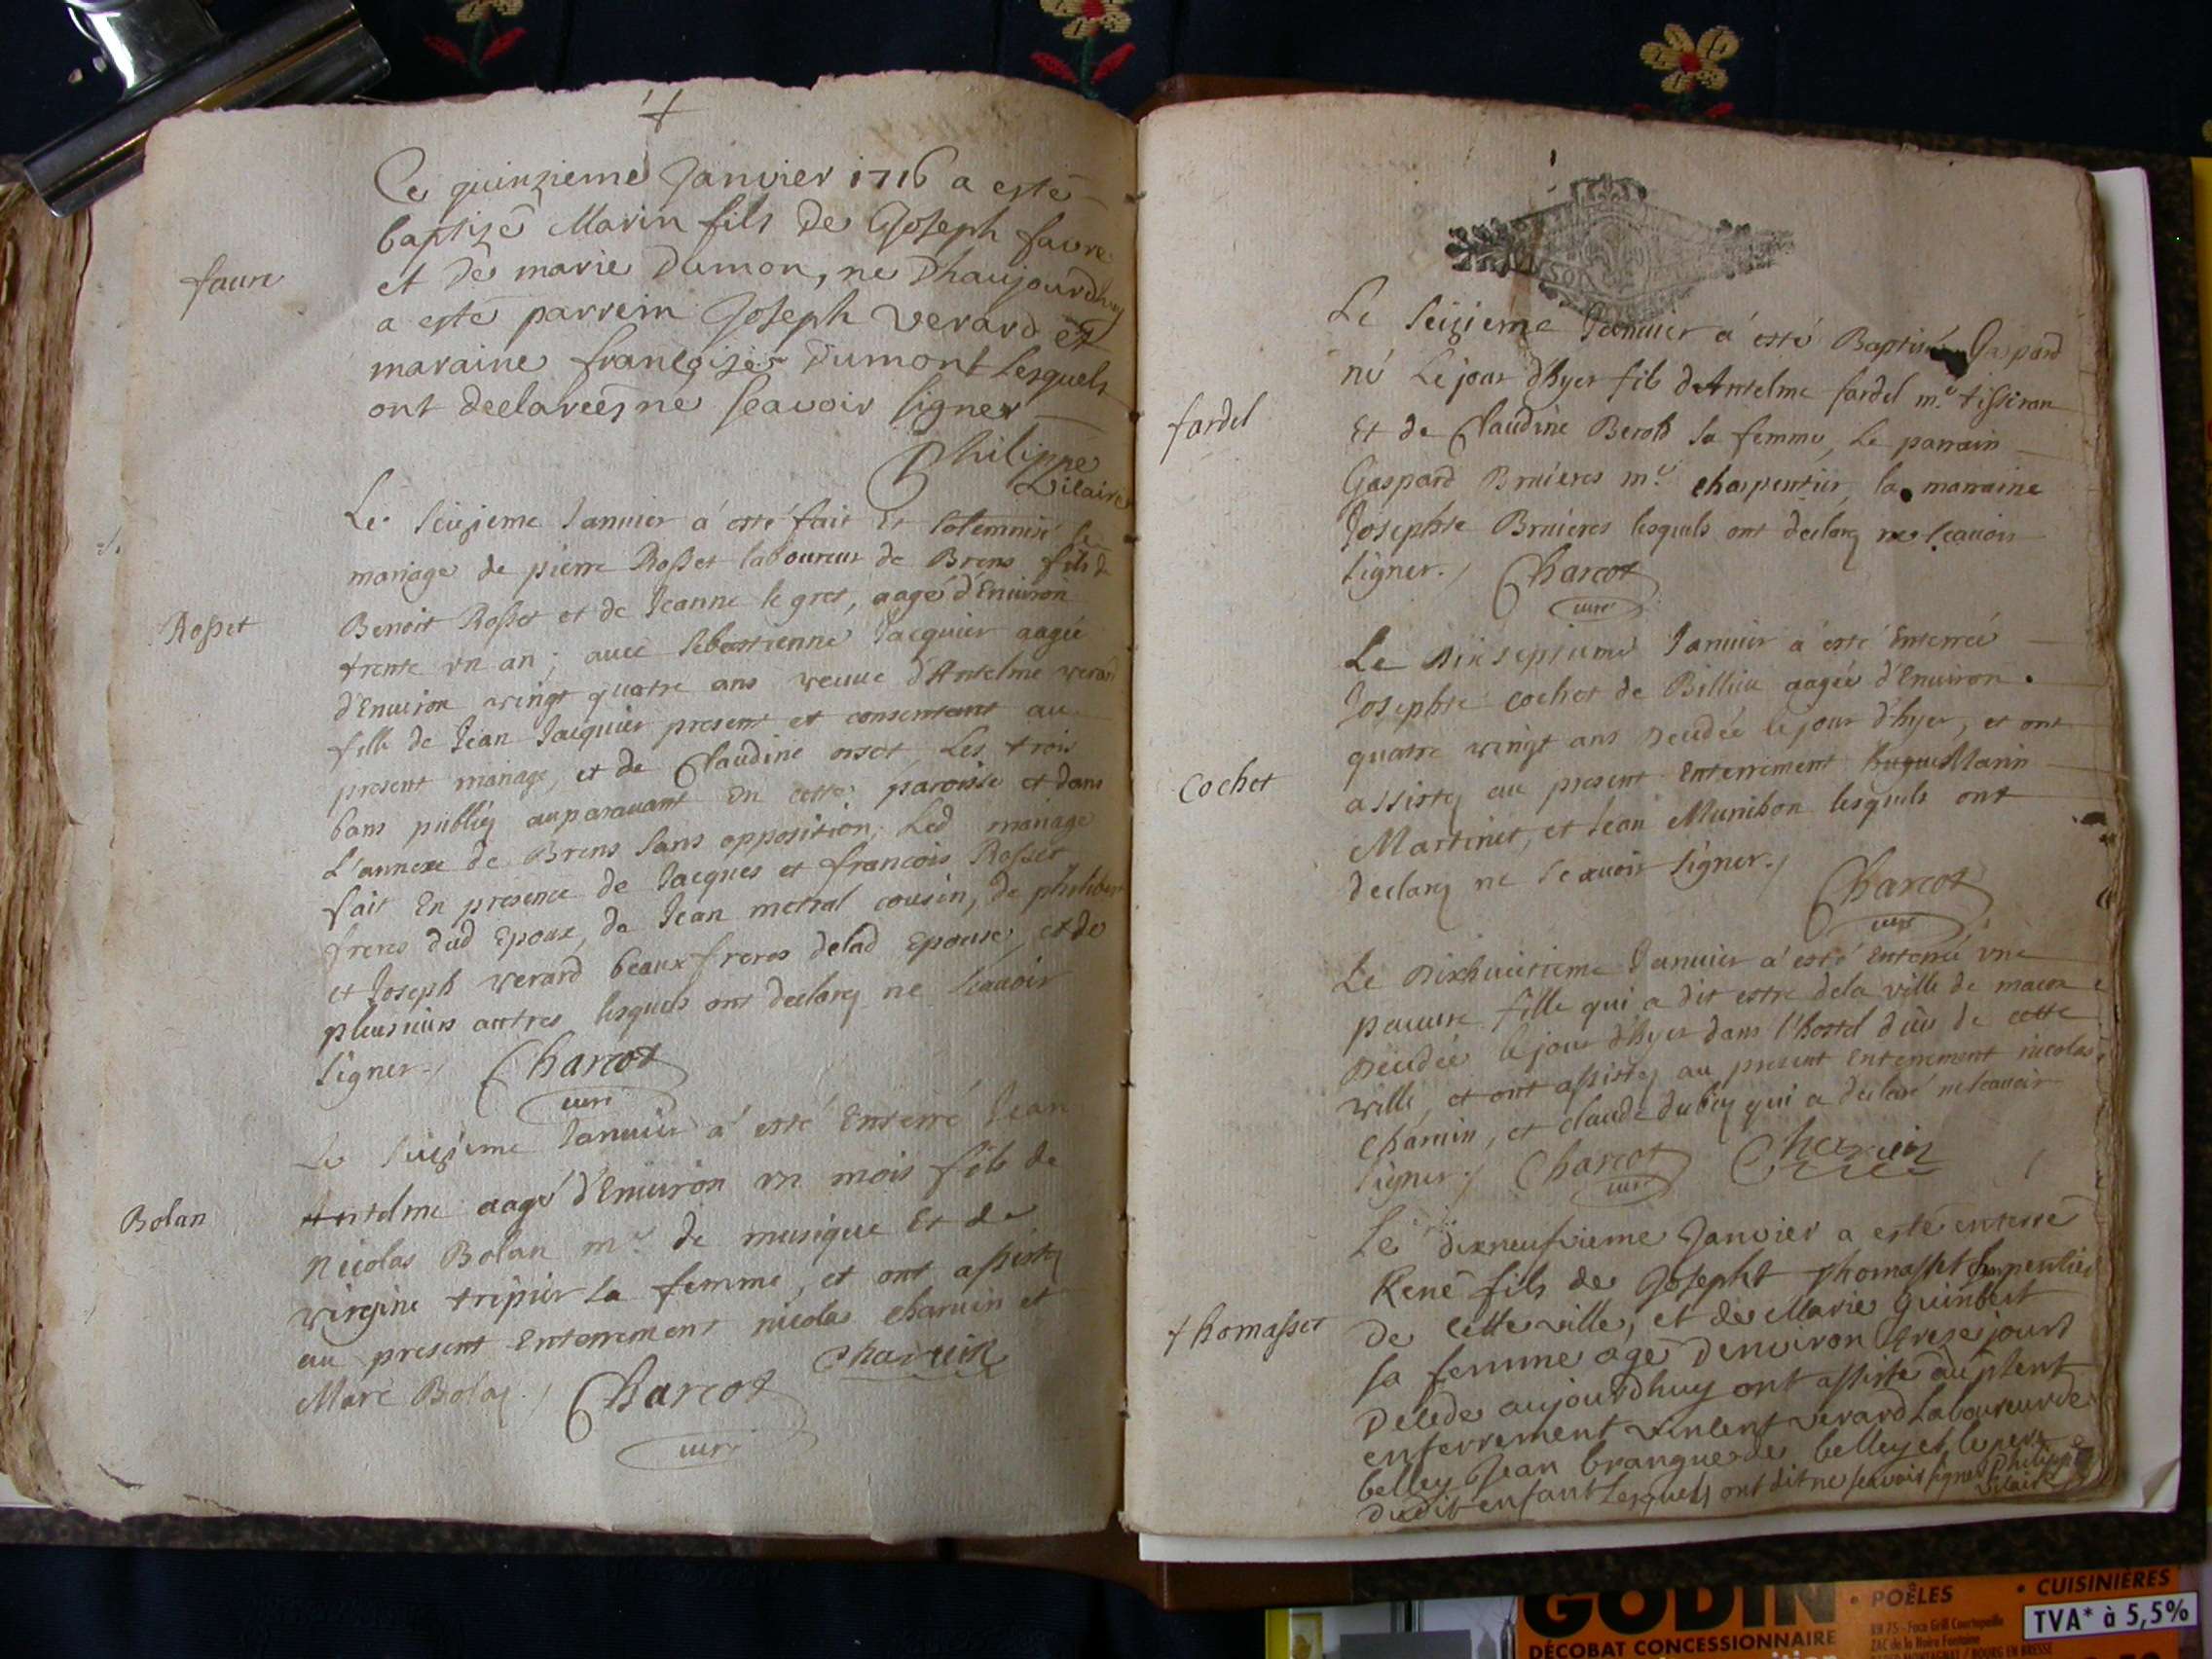 Ce quinzieme Janvier 1716 a esté
baptizé Marin fils de Joseph favre
faure
et de marie Dumon, ne Dhaujourdhuy
a esté parrein Joseph verard et
maraine francoise Dumont Lesquels
ont declarees ne scavoir signer
Philippe
Vilaire
Le seizieme Januier a esté fait et solemnisé le
mariage de pierre Rosset laboureur de Brens fils de
Rosset
Benoit Rosset et de Jeanne le gret, aagé d'Enuiron
trente vn an; auec sebastienne Jacquier aagée
d'Enuiron vingt quatre ans veuue d'Antelme verard
fille de Jean Jacquier present et consentant au
present mariage, et de Claudine onset, Les trois
bans publiez auparauant en cette paroisse et dans
L'annexe de Brens sans opposition, Led mariage
fait En presence de Jacques et francois Rosset
freres dud Epoux, de Jean metral cousin, de philibert
et Joseph verard beaux freres delad Epouse, et de
plusieurs autres lesquels ont declarez ne scauoir
signer./ Charcot
curé
Le seizieme Januier a esté Enterré Jean
Antelme aagé d'Enuiron vn mois fils de
Bolan
Nicolas Bolan m.e de musique Et de
virgine tripier sa femme, et ont assistez
au present Enterrement nicolas charuin et
Marc Bolan./ Charcot Charuin
curé
Le seizieme Januier a esté Baptisé Gaspard
né Le jour d'hyer fils d'Antelme fardel m.e tisseran
fardel
Et de Claudine Berod sa femme, Le parrain
Gaspard Bruieres m.e charpentier, la marraine
Josephte Bruieres lesquels ont declarez ne scauoir
signer./ Charcot
curé
Le Dixseptieme Januier a esté Enterrée
Josephte cochet de Billieu aagée d'Enuiron
quatre vingt ans Decedée le jour d'hyer, et ont
cochet
assistez au present Enterrement hugues Marin
Martinet, et Jean Munibon lesquels ont
declarez ne scauoir signer./
Charcot
curé
Le Dixhuictieme Januier a esté Enterrée vne
pauure fille qui a dit estre dela ville de macon
Decedée le jour d'hyer dans l'hostel dieu de cette
ville, et ont assistez au present Enterrement nicolas
charuin, et claude dubiez qui a declaré ne scauoir
signer./ Charcot Charuin
curé
Le dixneufvieme Janvier a esté enterré
René fils de Josepht Thomasset Charpentier
thomasset
de cette ville, et de Marie Guinbert
sa femme agé Denviron treze jours
Decede aujourdhuy ont assisté au present
enterrement vincent verard Laboureur de
belley Jean brangue de belley et le pere
dudit enfant Lesquels ont dit ne scavoir signer Philippe
Vilaire
GODIN
DÉCOBAT CONCESSIONNAIRE
• POÊLES
• CUISINIÈRES
TVA* à 5,5%